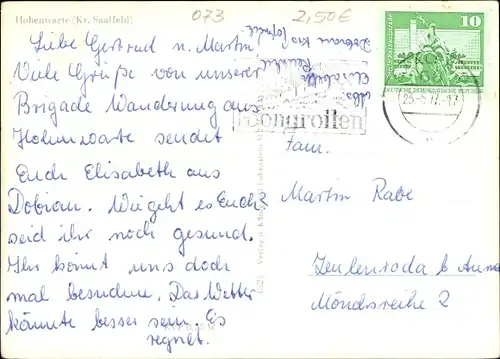 Hohenwarte (Kr. Saalfeld)
073
2,50€
10
DEUTSCHE DEMOKRATISCHE REPUBLIK
Liebe Gertrud u. Martin
Viele Grüße von unserer
Brigade Wanderung aus
Hohenwarte sendet
Euch Elisabeth aus
Dobian. Wie geht es Euch?
seid ihr noch gesund.
Ihr könnt uns doch
mal besuchen. Das Wetter
könnte besser sein. Es
regnet.
Abs
Elisabeth
Dobian
Feengrotten
25-5.77-17
Fam.
Martin Rabe
Zeulenroda bei Auma
Mönchsreihe 2